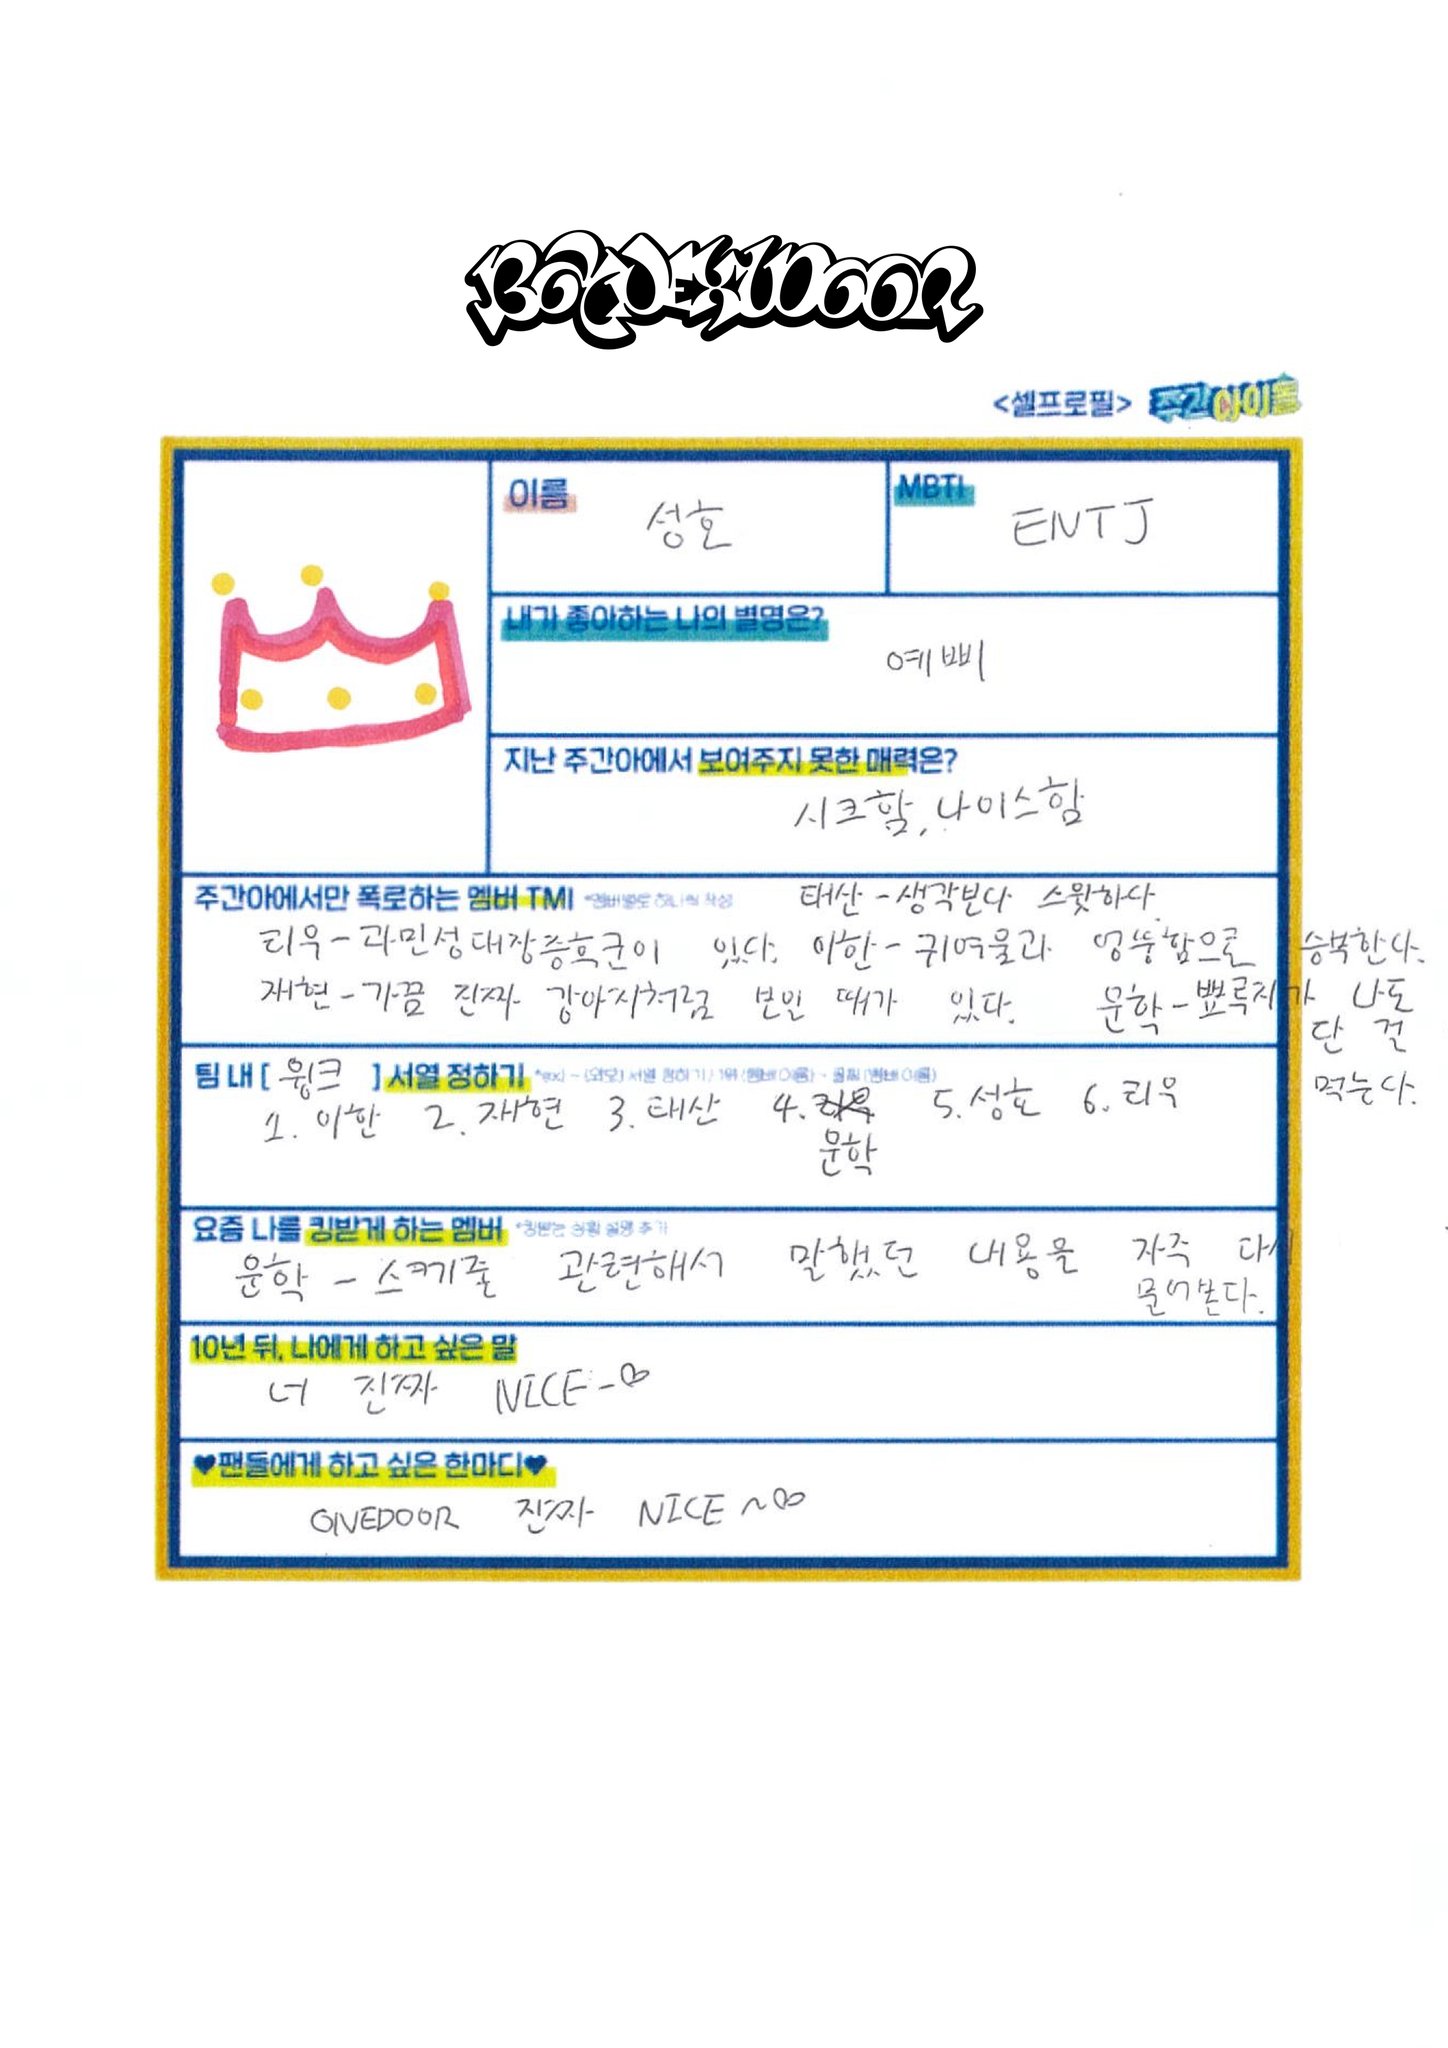 BOYNEXTDOOR
<셀프로필> 주간아이돌
이름
성호
MBTI
ENTJ
내가 좋아하는 나의 별명은?
예삐
지난 주간아에서 보여주지 못한 매력은?
시크함, 나이스함
주간아에서만 폭로하는 멤버 TMI *멤버별로 하나씩 작성
태산 - 생각보다 스윗하다.
리우 - 과민성대장증후군이 있다. 이한 - 귀여움과 엉뚱함으로 승복한다.
재현 - 가끔 진짜 강아지처럼 보일 때가 있다. 운학 - 뾰루지가 나도
단 걸
먹는다.
팀 내 [ 윙크 ] 서열 정하기 *ex) ~ (외모) 서열 정하기 / 1위 (멤버이름) - 꼴찌 (멤버이름)
1. 이한 2. 재현 3. 태산 4. 리우 5. 성호 6. 리우
운학
요즘 나를 킹받게 하는 멤버 *킹받는 상황 설명 추가
운학 - 스케줄 관련해서 말했던 내용을 자주 다시
물어본다.
10년 뒤, 나에게 하고 싶은 말
너 진짜 NICE~
♥팬들에게 하고 싶은 한마디♥
ONEDOOR 진짜 NICE~